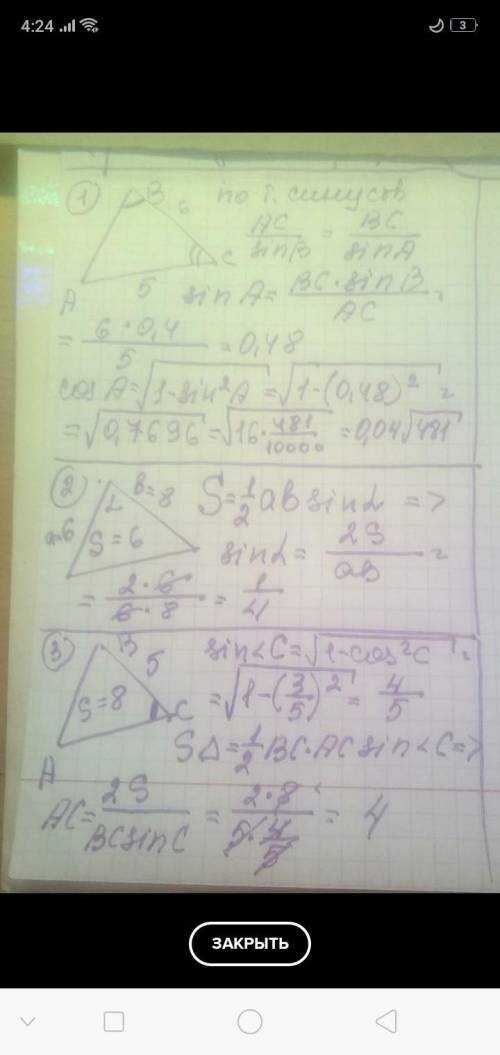 4:24
3
① B 6 по т. синусов
AC/sinB = BC/sinA
C
A 5 sin A = BC·sin B/AC =
= 6·0,4/5 = 0,48
cos A = √(1-sin²A) = √(1-(0,48)²) =
= √0,7696 = √(16·481/10000) = 0,04√481
② L B=8 S=1/2 ab sin L =>
a=6 S=6 sin L = 2S/ab =
= 2·6/6·8 = 1/4
③ B 5 sin<C = √(1-cos²C) =
S=8 C = √(1-(3/5)²) = 4/5
S△ = 1/2 BC·AC sin<C =>
A
AC = 2S/BC sin C = 2·8/5·4/5 = 4
ЗАКРЫТЬ